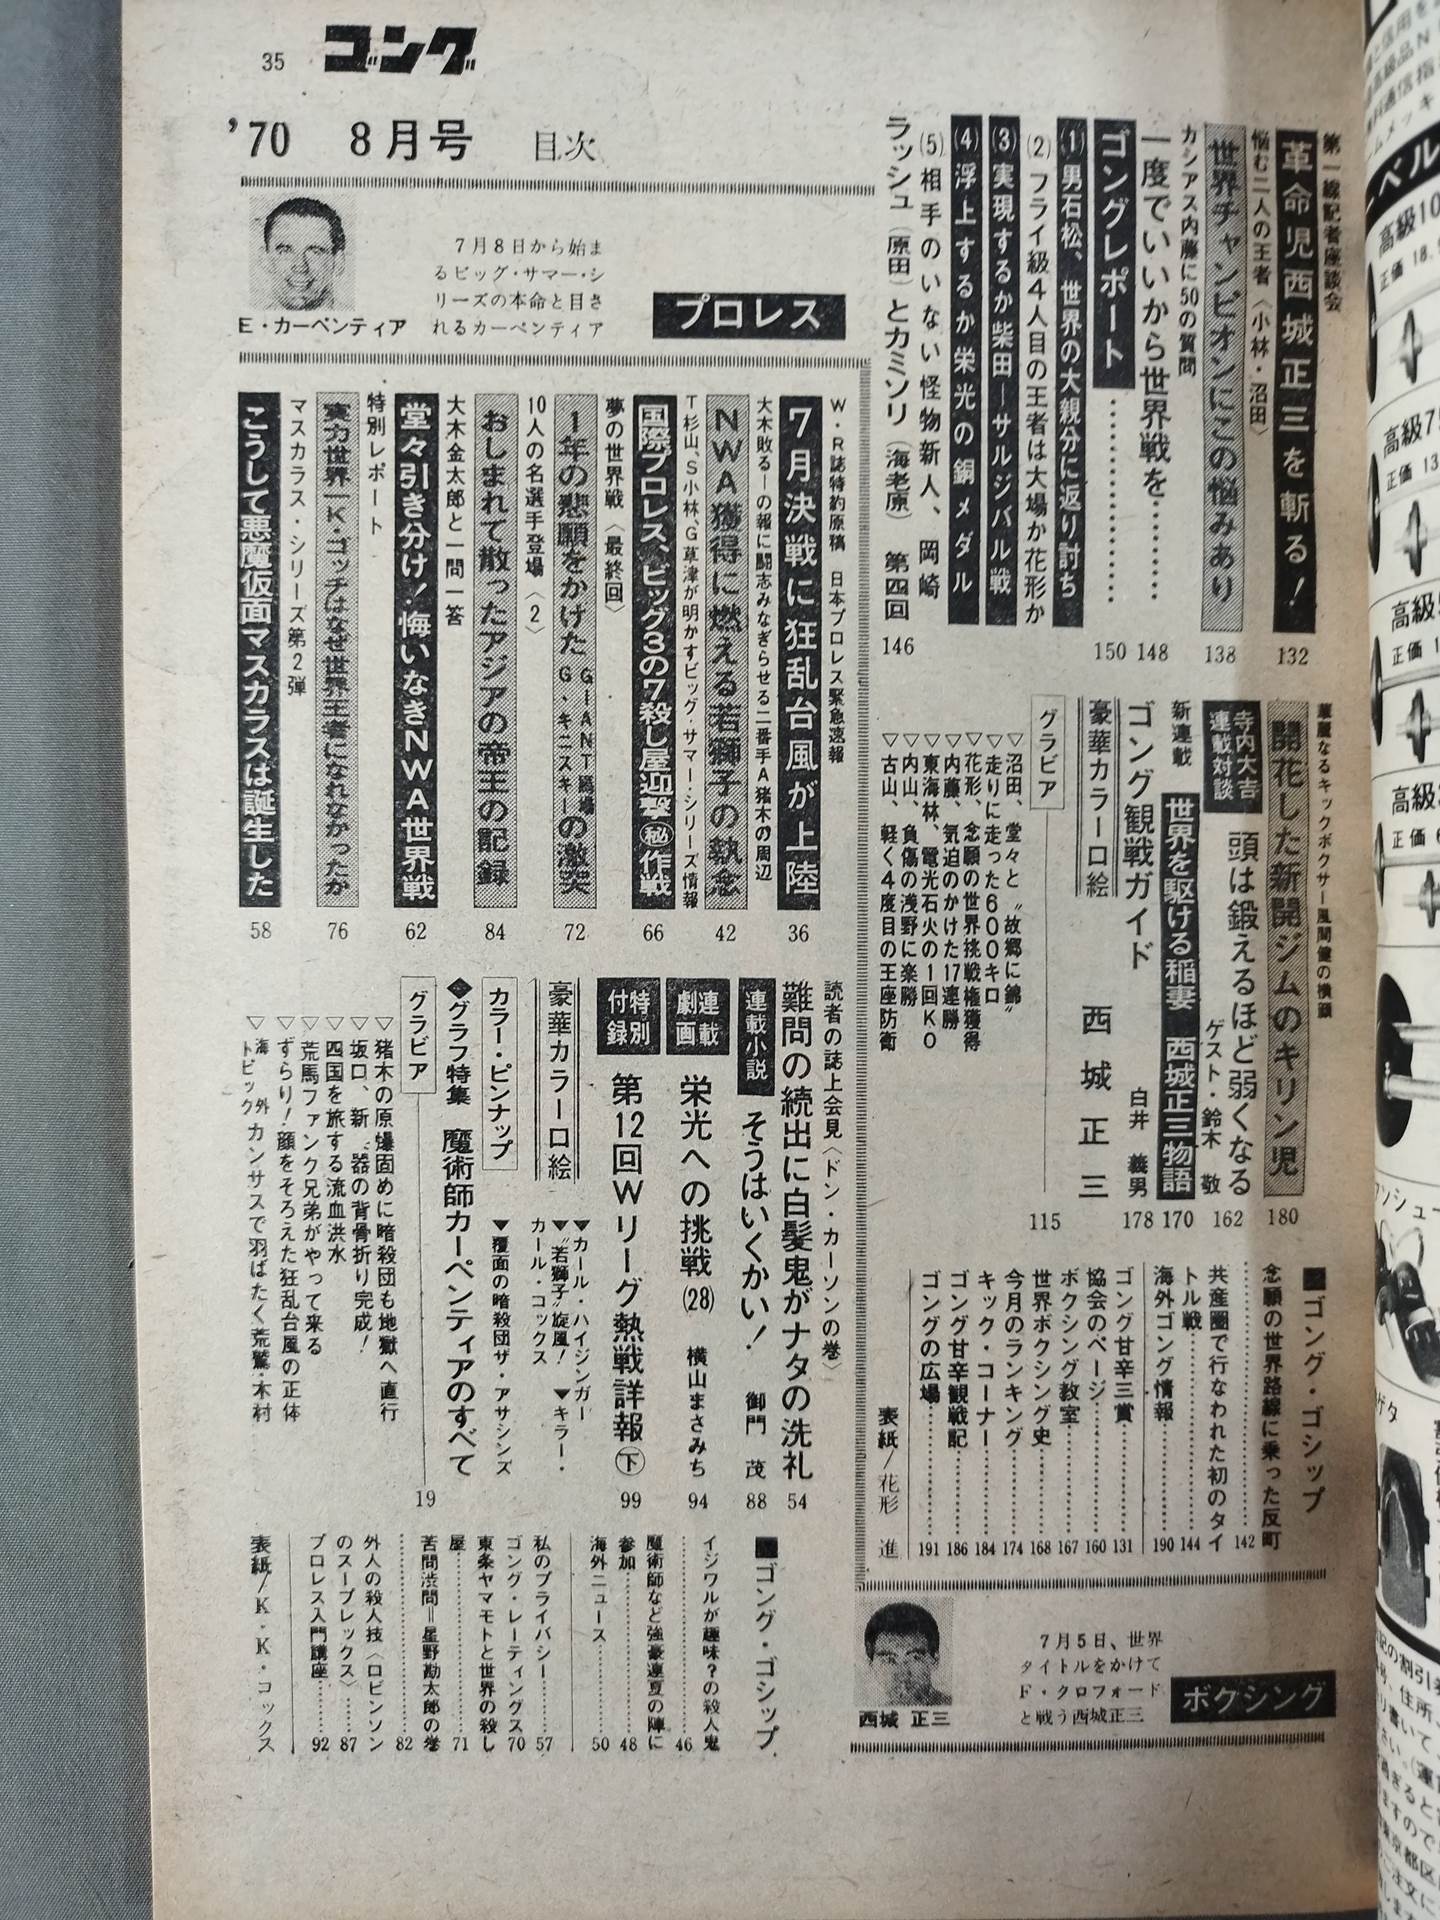 35
ゴング
'70 8月号 目次
第一線記者座談会
革命児西城正三を斬る! 132
悩む二人の王者〈小林・沼田〉
世界チャンピオンにこの悩みあり 138
カシアス内藤に50の質問
一度でいいから世界戦を 148
ゴングレポート 150
(1)男石松、世界の大親分に返り討ち
(2)フライ級4人目の王者は大場か花形か
(3)実現するか柴田―サルジバル戦
(4)浮上するか栄光の銅メダル
(5)相手のいない怪物新人、岡崎
ラッシュ(原田)とカミソリ(海老原) 第四回 146
華麗なるキックボクサー風間健の横顔
開花した新開ジムのキリン児 180
寺内大吉
連載対談
頭は鍛えるほど弱くなる
ゲスト・鈴木 敬 162
新連載
世界を駆ける稲妻 西城正三物語 170
ゴング観戦ガイド 白井 義男 178
豪華カラー口絵 西城正三
グラビア 115
▽沼田、堂々と〝故郷に錦〟
▽走りに走った600キロ
▽花形、念願の世界挑戦権獲得
▽内藤、気迫のかけた17連勝
▽東海林、電光石火の1回KO
▽内山、負傷の浅野に楽勝
▽古山、軽く4度目の王座防衛
■ゴング・ゴシップ
念願の世界路線に乗った反町 142
共産圏で行なわれた初のタイトル戦 144
海外ゴング情報 190
ゴング甘辛三賞 131
協会のページ 160
ボクシング教室 167
世界ボクシング史 168
今月のランキング 174
キック・コーナー 184
ゴング甘辛観戦記 186
ゴングの広場 191
表紙/花形 進
ボクシング
7月5日、世界
タイトルをかけて
F・クロフォード
と戦う西城正三
西城 正三
プロレス
7月8日から始ま
るビッグ・サマー・シ
リーズの本命と目さ
れるカーペンティア
E・カーペンティア
W・R誌特約原稿 日本プロレス緊急速報
7月決戦に狂乱台風が上陸 36
大木敗る―の報に闘志みなぎらせる二番手A猪木の周辺
NWA獲得に燃える若獅子の執念 42
T杉山、S小林、G草津が明かすビッグ・サマー・シリーズ情報
国際プロレス、ビッグ3の7殺し屋迎撃㊙作戦 66
夢の世界戦〈最終回〉
1年の悲願をかけた GIANT馬場 G・キニスキー の激突 72
10人の名選手登場〈2〉
おしまれて散ったアジアの帝王の記録 84
大木金太郎と一問一答
堂々引き分け!悔いなきNWA世界戦 62
特別レポート
実力世界一K・ゴッチはなぜ世界王者になれなかったか 76
マスカラス・シリーズ第2弾
こうして悪魔仮面マスカラスは誕生した 58
読者の誌上会見〈ドン・カーソンの巻〉
難問の続出に白髪鬼がナタの洗礼 54
連載小説
そうはいくかい! 御門 茂 88
連載劇画
栄光への挑戦(28) 横山まさみち 94
特別付録
第12回Wリーグ熱戦詳報㊦ 99
豪華カラー口絵
▼カール・ハイジンガー
▼〝若獅子〟旋風! ▼キラー・
カール・コックス
カラー・ピンナップ
▼覆面の暗殺団ザ・アサシンズ
◆グラフ特集 魔術師カーペンティアのすべて
グラビア 19
▽猪木の原爆固めに暗殺団も地獄へ直行
▽坂口、新〝器の背骨折り完成!
▽四国を旅する流血洪水
▽荒馬ファンク兄弟がやって来る
▽ずらり!顔をそろえた狂乱台風の正体
▽海外トピック カンサスで羽ばたく荒鷲・木村
■ゴング・ゴシップ
イジワルが趣味?の殺人鬼 46
魔術師など強豪連夏の陣に参加 48
海外ニュース 50
私のプライバシー 57
ゴング・レーティングス 70
東条ヤマモトと世界の殺し屋 71
苦問渋問=星野勘太郎の巻 82
外人の殺人技〈ロビンソンのスープレックス〉 87
プロレス入門講座 92
表紙/K・K・コックス
高級10
正価 18.
高級7
正価 13
高級
正価 1
高級
正価 6